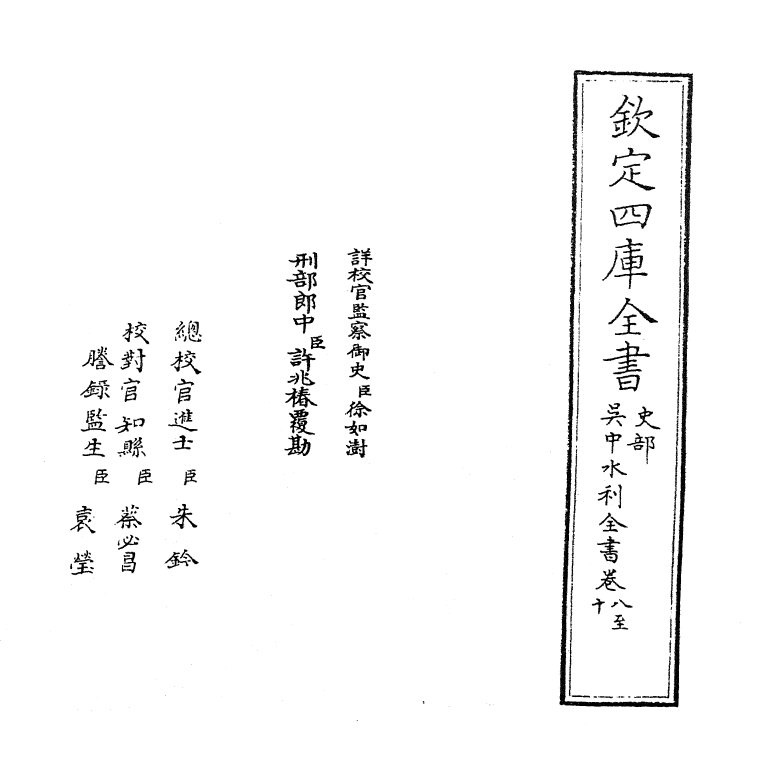 欽定四庫全書
史部
吳中水利全書卷八至十
詳校官監察御史臣徐如澍
刑部郎中臣許兆椿覆勘
總校官進士臣朱鈐
校對官知縣臣蔡必昌
謄錄監生臣袁瑩